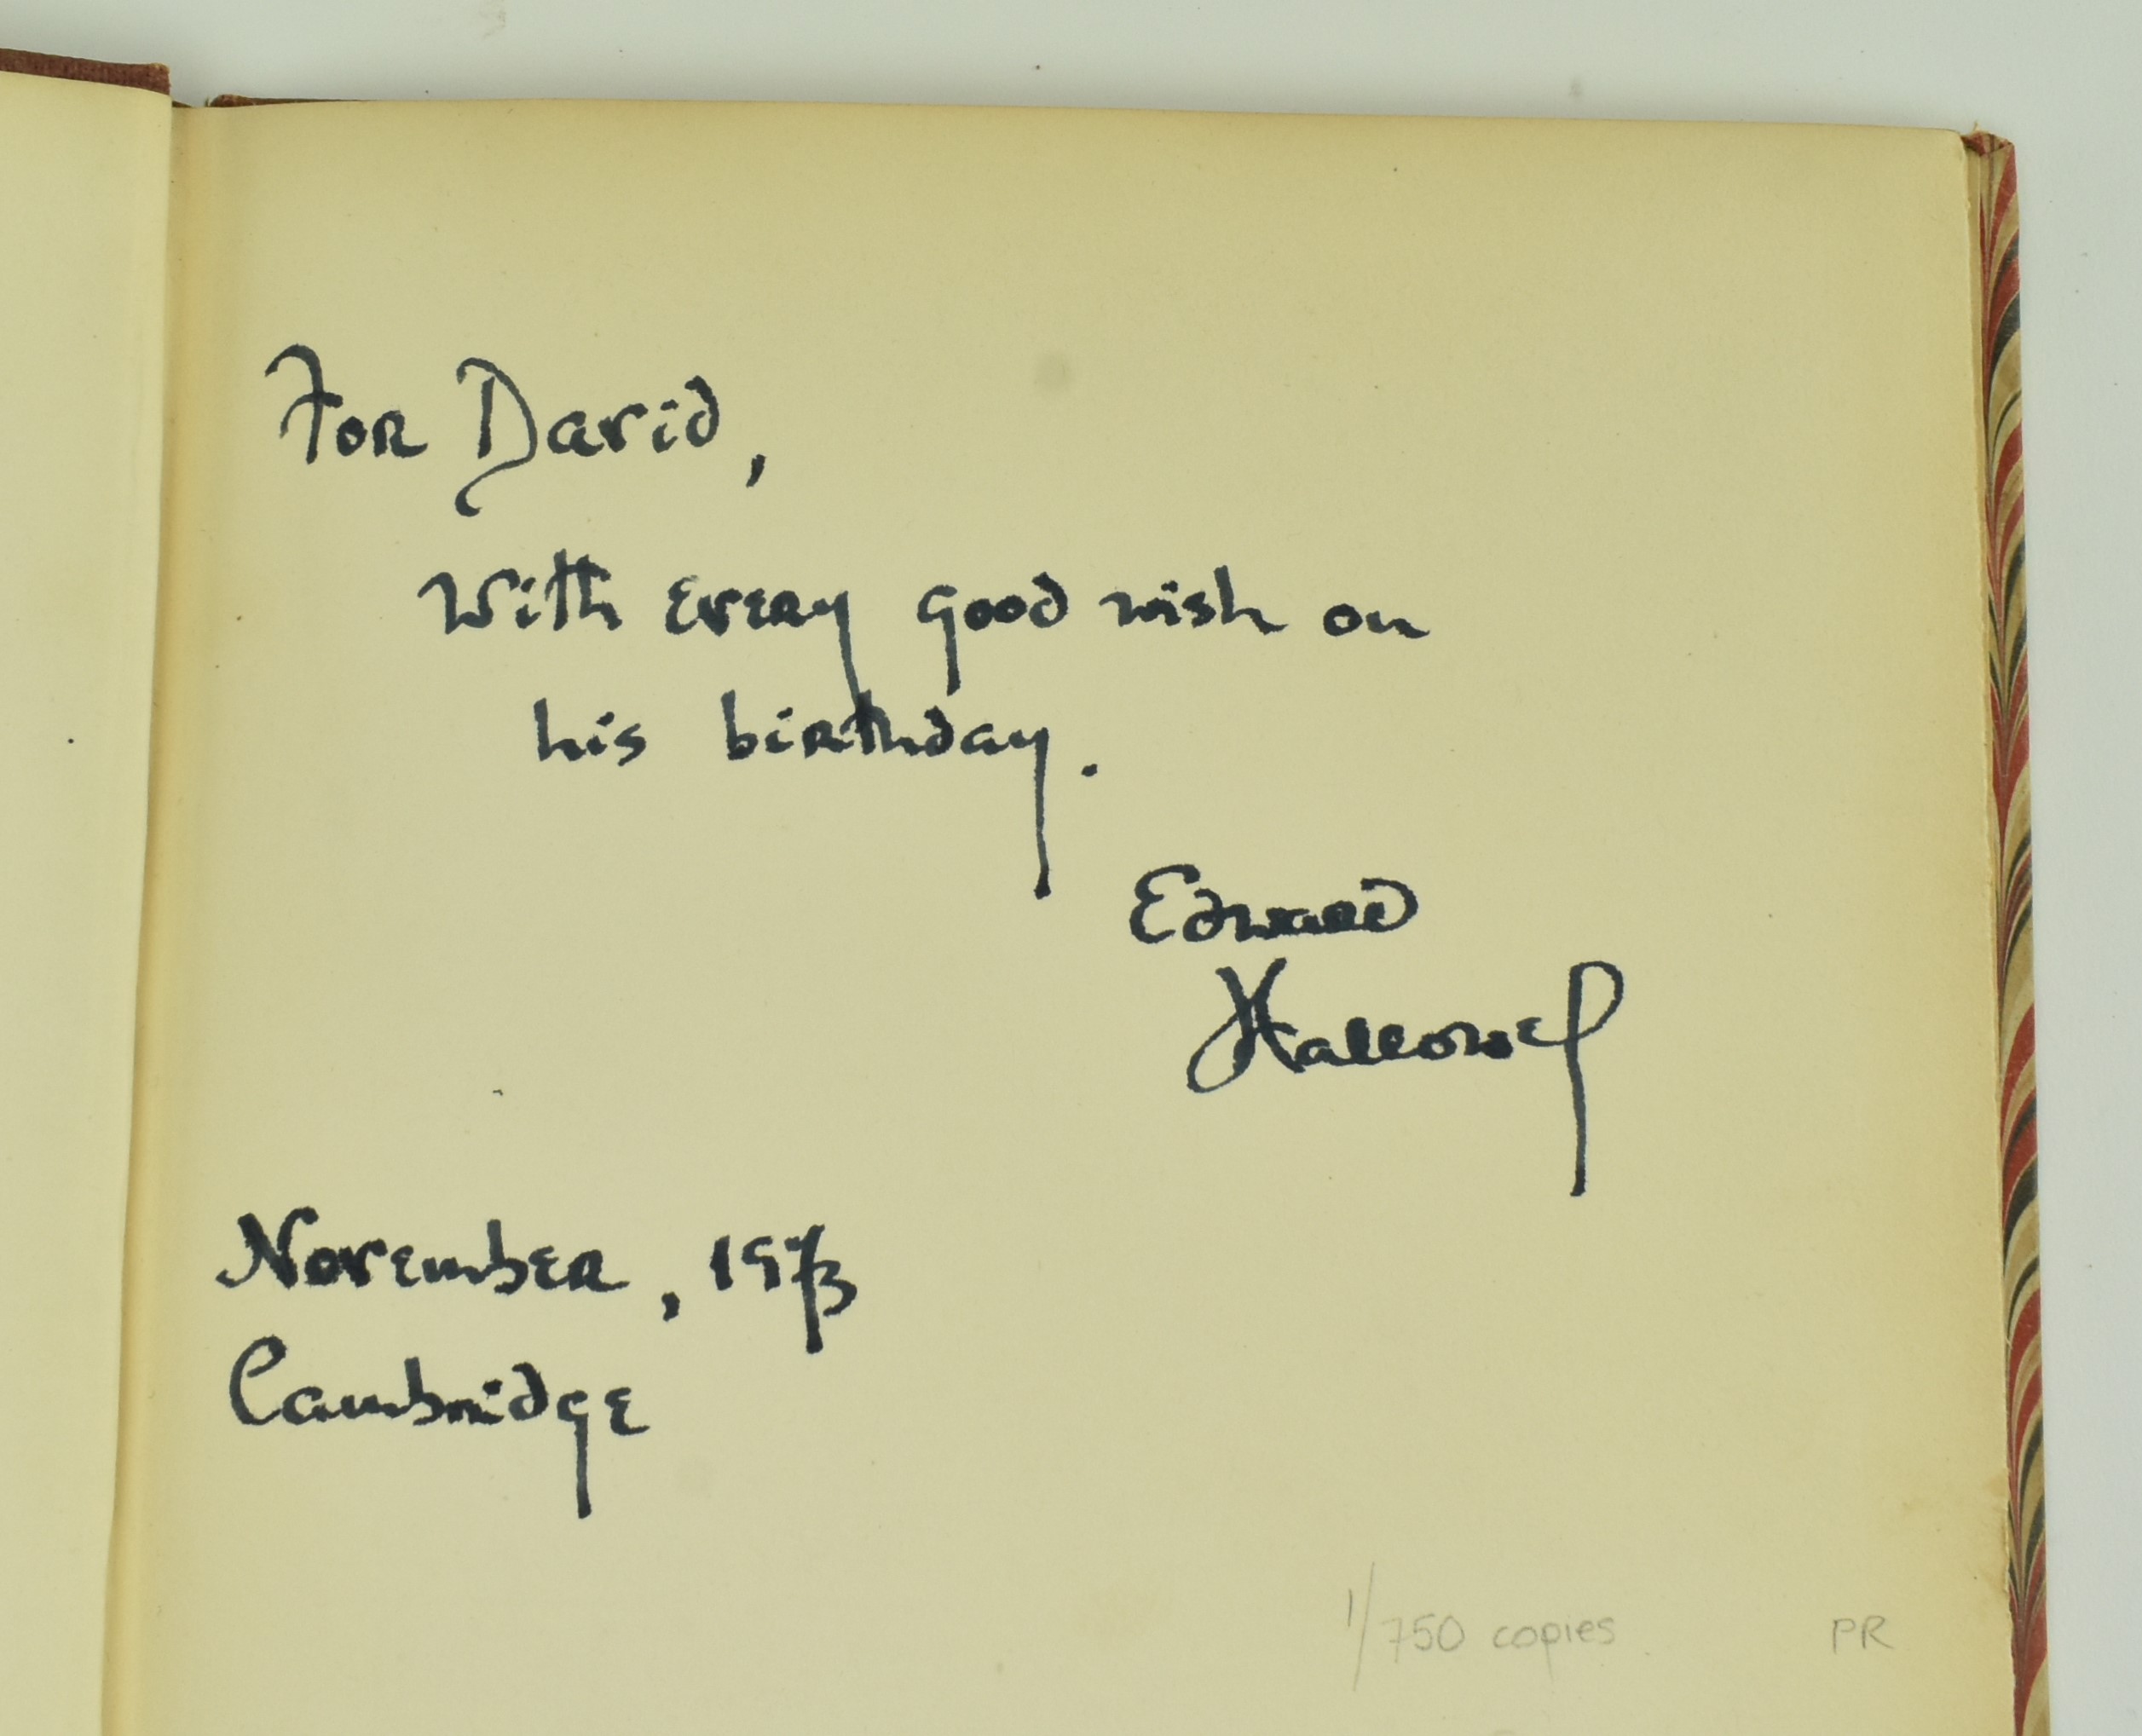 For David,
With every good wish on
his birthday.
Edward
Hallowel
November, 1973
Cambridge
1/750 copies PR